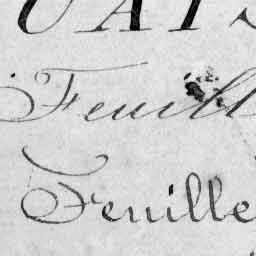 Feuill
Feuille